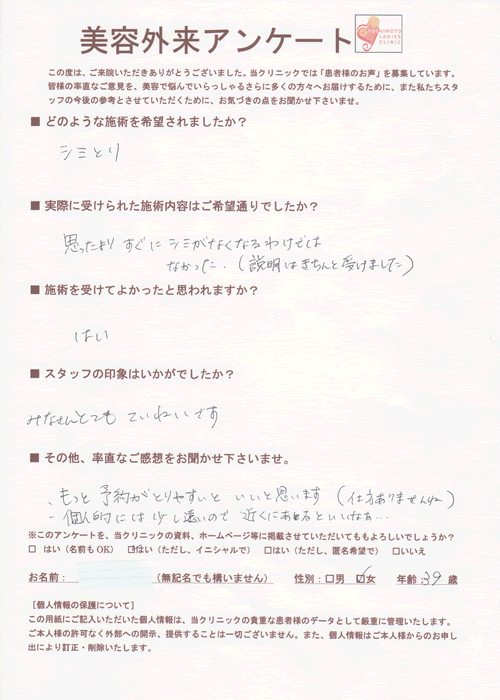 美容外来アンケート
YOSHIMOTO
LADIES
CLINIC
この度は、ご来院いただきありがとうございました。当クリニックでは「患者様のお声」を募集しています。
皆様の率直なご意見を、美容で悩んでいらっしゃるさらに多くの方々へお届けするために、また私たちスタ
ッフの今後の参考とさせていただくために、お気づきの点をお聞かせ下さいませ。
■ どのような施術を希望されましたか？
シミとり
■ 実際に受けられた施術内容はご希望通りでしたか？
思ったより すぐに シミがなくなるわけでは
なかった．(説明はきちんと受けました)
■ 施術を受けてよかったと思われますか？
はい
■ スタッフの印象はいかがでしたか？
みなさんとても ていねいです
■ その他、率直なご感想をお聞かせ下さいませ。
、もっと 予約がとりやすいと いいと思います (仕方ありませんね)
- 個人的には 少し遠いので 近くにあるといいなあ…
※このアンケートを、当クリニックの資料、ホームページ等に掲載させていただいてもよろしいでしょうか？
□ はい（名前もOK） ☑はい（ただし、イニシャルで） □はい（ただし、匿名希望で） □いいえ
お名前： （無記名でも構いません） 性別：□男 ☑女 年齢 39 歳
［個人情報の保護について］
この用紙にご記入いただいた個人情報は、当クリニックの貴重な患者様のデータとして厳重に管理いたします。
ご本人様の許可なく外部への開示、提供することは一切ございません。また、個人情報はご本人様からのお申し
出により訂正・削除いたします。